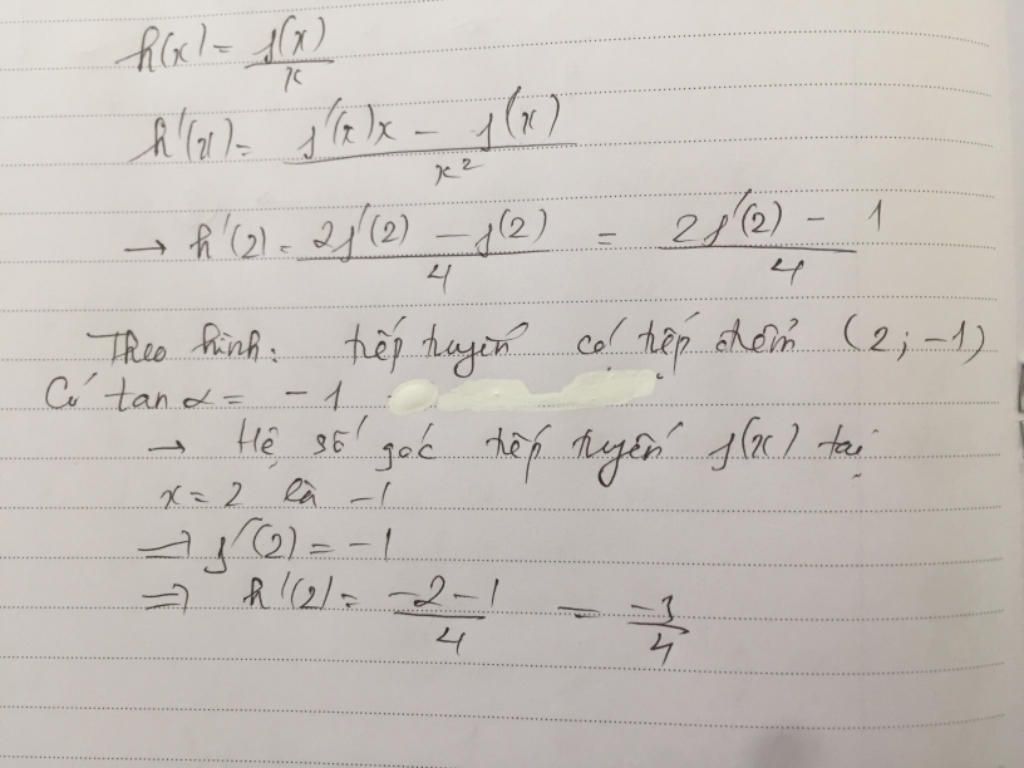 h(x) = f(x)/x
h'(x) = (f'(x)x - f(x))/x²
→ h'(2) = (2f'(2) - f(2))/4 = (2f'(2) - 1)/4
Theo hình: tiếp tuyến có tiếp điểm (2; -1)
Có tan α = -1
→ Hệ số góc tiếp tuyến f(x) tại
x = 2 là -1
⇒ f'(2) = -1
⇒ h'(2) = (-2 - 1)/4 = -3/4